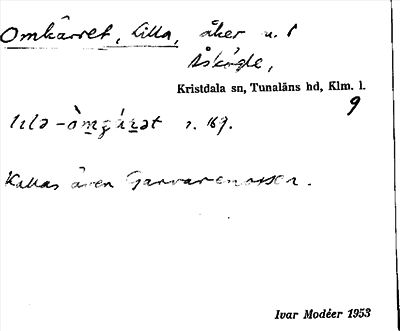 Omkärret, Lilla, åker u. 1
Åskögle,
Kristdala sn, Tunaläns hd, Klm. l.
9
lila - r. 169.
Kallas även Garvarenossen.
Ivar Modéer 1953